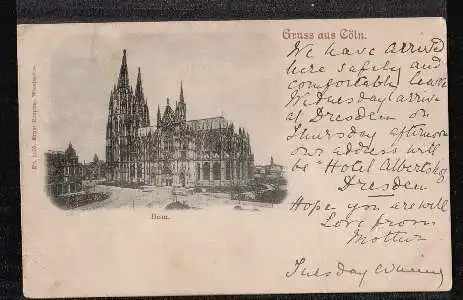 Gruss aus Cöln.
We have arrived
here safely and
comfortably leave
Wednesday arrive
at Dresden on
Thursday afternoon
our address will
be "Hotel Albertshof
Dresden
Hope you are well
Love from
Mother
Tuesday evening
Dom.